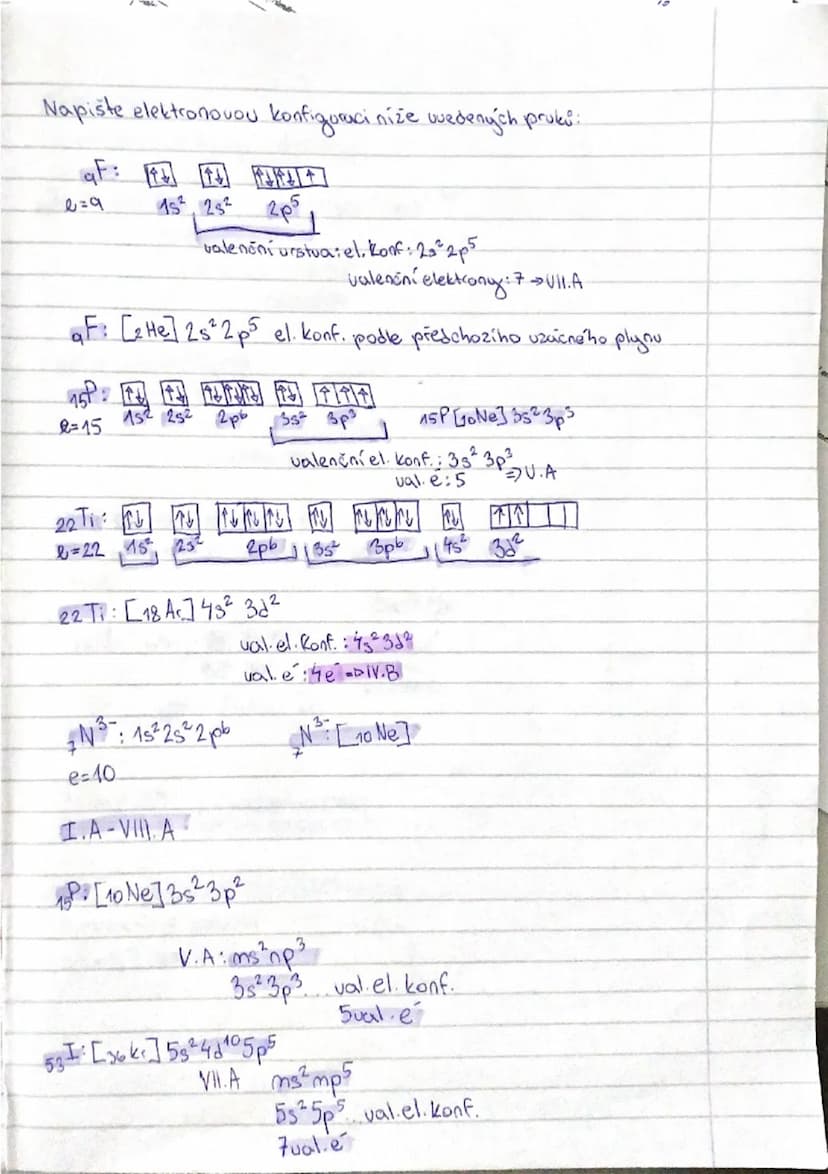 Napište elektronovou konfiguraci níže uvedených prvků:
₉F: ↑↓ ↑↓ ↑↓ ↑↓ ↑
e=9 1s² 2s² 2p⁵
valenční vrstva: el. konf: 2s² 2p⁵
valenční elektrony: 7 → VII.A
₉F: [₂He] 2s² 2p⁵ el. konf. podle předchozího vzácného plynu
₁₅P: ↑↓ ↑↓ ↑↓ ↑↓ ↑↓ ↑↓ ↑ ↑ ↑
e=15 1s² 2s² 2p⁶ 3s² 3p³ 15P [₁₀Ne] 3s² 3p³
valenční el. konf.: 3s² 3p³
val. é: 5 ⇒ V.A
₂₂Ti: ↑↓ ↑↓ ↑↓ ↑↓ ↑↓ ↑↓ ↑↓ ↑↓ ↑↓ ↑↓ ↑ ↑
e=22 1s² 2s² 2p⁶ 3s² 3p⁶ 4s² 3d²
₂₂Ti: [₁₈Ar] 4s² 3d²
val. el. konf.: 4s² 3d²
val. é: 4é ⇒ IV.B
₇N³⁻: 1s² 2s² 2p⁶ ₇N³⁻: [₁₀Ne]
e=10
I.A - VIII.A
₁₅P: [₁₀Ne] 3s² 3p²
V.A: ns² np³
3s² 3p³... val. el. konf.
5 val. é
₅₃I: [₃₆Kr] 5s² 4d¹⁰ 5p⁵
VII.A ns² np⁵
5s² 5p⁵... val. el. konf.
7 val. é